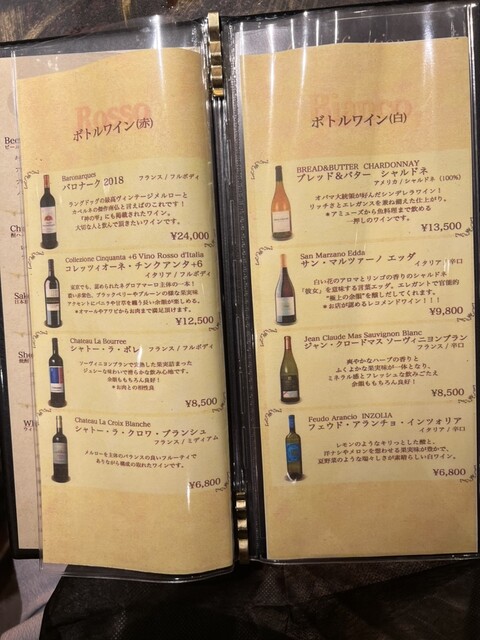 Rosso
ボトルワイン(赤)
Baronarques
バロナーク 2018 フランス / フルボディ
ラングドックの最高ヴィンテージメルローと
大切な人と飲んで頂きたいワインです。
¥24,000
Collezione Cinquanta +6 Vino Rosso d'Italia
コレッツィオーネ・チンクアンタ+6
イタリア / フルボディ
*オマールやアワビからお肉まで満足頂けます。
¥12,500
Chateau La Bourree
シャトー・ラ・ボレ フランス / フルボディ
ソーヴィニヨンブランで完熟した果実詰まった
ジューシな味わいで滑らかな飲み心地です。
余韻ももちろん良好!
*お肉との相性良
¥8,500
Chateau La Croix Blanche
シャトー・ラ・クロワ・ブランシュ
フランス / ミディアム
メルローを主体のバランスの良いフルーティで
ありながら構成の取れたワインです。
¥6,800
Bianco
ボトルワイン(白)
BREAD&BUTTER CHARDONNAY
ブレッド&バター シャルドネ
アメリカ / シャルドネ (100%)
オバマ大統領が好んだシンデレラワイン!
リッチさとエレガンスを兼ね備えた仕上がり。
*アミューズから魚料理まで飲める
一押しのワインです。
¥13,500
San Marzano Edda
サン・マルツァーノ エッダ
イタリア / 辛口
白い花のアロマとリンゴの香りのシャルドネ
「彼女」を意味する言葉エッダ。エレガントで官能的
"極上の余韻"を醸しだしてくれます。
*お店が認めるレコメンドワイン!!!
¥9,800
Jean Claude Mas Sauvignon Blanc
ジャン・クロードマス ソーヴィニヨンブラン
フランス / 辛口
爽やかなハーブの香りと
ふくよかな果実味が一体となり、
ミネラル感とフレッシュな飲みごたえ
余韻ももちろん良好!
¥8,500
Feudo Arancio INZOLIA
フェウド・アランチョ・インツォリア
イタリア / 辛口
レモンのようなキリッとした酸と、
洋ナシやメロンを思わせる果実味が豊かで、
夏野菜のような瑞々しさが素晴らしい白ワイン。
¥6,800